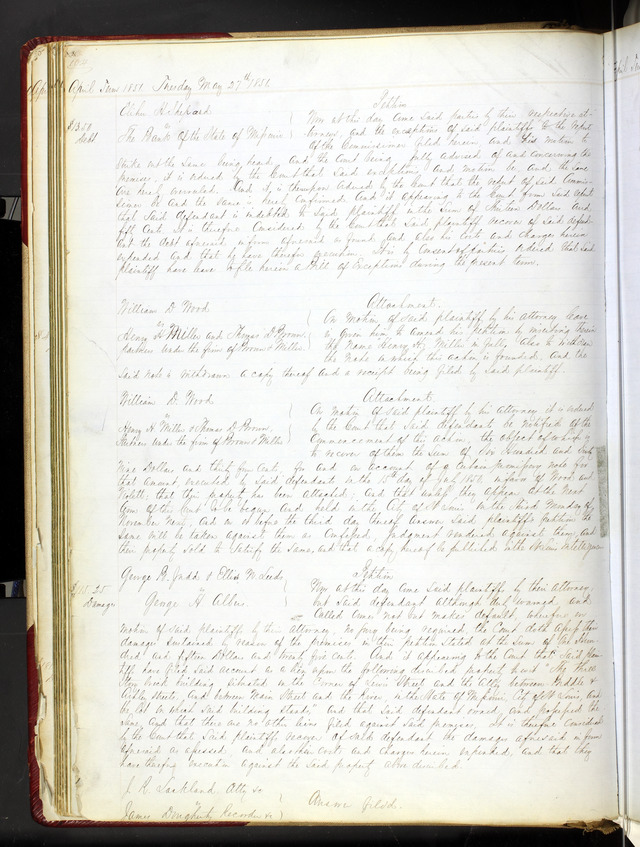 April Term 1851 Tuesday May 27th 1851
Elihu H. Shepard
vs
The Bank of the State of Missouri
$13.50
Debt
Petition
Now at this day come said parties by their respective at-
torneys, and the exceptions of said plaintiffs to the report
of the Commissioner filed herein and his motion to
strike out the same being heard, and the Court being fully advised of and concerning the
premises, it is ordered by the Court that said exceptions and motion be and the same
are hereby overruled. And it is thereupon ordered by the Court that the report of said Commis-
sioner be and the same is hereby confirmed And it appearing to the Court from said report
that said defendant is indebted to said plaintiff in the sum of thirteen Dollars and
fifty Cents it is therefore Considered by the Court that said plaintiff recover of said defend-
ant the debt aforesaid in form aforesaid found and also his costs and charges herein
expended and that he have therefor execution. It is by consent of parties ordered that said
plaintiff have leave to file herein a Bill of Exceptions during the present term.
William D. Wood
vs
Henry H. Miller and Thomas D. Brown
Partners under the firm of Brown & Miller
Attachment.
On motion of said plaintiff by his attorney leave
is given him to amend his petition by inserting therein
the name Henry H. Miller in full, also to withdraw
the Note on which this action is founded. And the
said note is withdrawn a copy thereof and a receipt being filed by said plaintiff.
William D. Wood
vs
Henry H. Miller & Thomas D. Brown,
Partners under the firm of Brown & Miller
Attachment.
On motion of said plaintiff by his attorney it is ordered
by the Court that said defendants be notified of the
Commencement of this action, the object of which is
to recover of them the sum of Six Hundred and
Nine Dollars and thirty five Cents, for and on account of a certain promissory note for
that amount, executed by said defendants on the 15th day of July 1850 in favor of Wood and
that their property has been attached; and that unless they appear at the next
term of this Court to be begun and held in the City of St Louis on the third Monday of
November next, and on or before the third day thereof answer said plaintiff's petition the
same will be taken against them as confessed, judgment rendered against them, and
their property sold to satisfy the same, and that a copy hereof be published in the Intelligencer
George B. Judd & Ellis W. Leeds
vs
George H. Allen.
$115 25
Damages
Petition
Now at this day come said plaintiffs by their Attorney,
but said defendant although duly warned, and
called comes not but makes default, wherefore on
motion of said plaintiffs by their attorney, no jury being required, the Court doth find the
damages sustained by reason of the premises in their petition stated at the sum of One Hun-
dred and fifteen Dollars and twenty five cents. And it appearing to the Court that said plain-
tiffs have filed said account as a lien upon the following described property to wit "The three
story brick building situated on the corner of Lewis Street and the Alley between
street, and between Main Street and the River, in the State of Missouri, City of St Louis, and
the lot on which said building stands," and that said defendant owned, and possessed the
same, and that there are no other liens filed against said premises. It is therefore Considered
by the Court that said plaintiffs recover of said defendant the damages aforesaid in form
aforesaid as assessed and also their costs and charges herein expended, and that they
have therefor execution against the said property above described.
J. R. Lackland Atty &c
vs
James Dougherty Recorder &c
Answer filed.